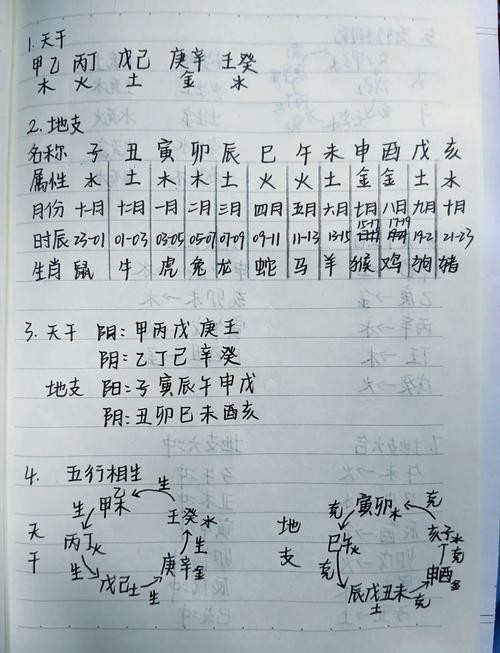 1. 天干
甲乙 丙丁 戊己 庚辛 壬癸
木 火 土 金 水
2. 地支
名称 子 丑 寅 卯 辰 巳 午 未 申 酉 戌 亥
属性 水 土 木 木 土 火 火 土 金 金 土 水
月份 十一月 十二月 一月 二月 三月 四月 五月 六月 七月 八月 九月 十月
15-17 17-19
时辰 23-01 01-03 03-05 05-07 07-09 09-11 11-13 13-15 19-21 21-23
生肖 鼠 牛 虎 兔 龙 蛇 马 羊 猴 鸡 狗 猪
3. 天干 阴: 甲丙戊庚壬
阴: 乙丁己辛癸
地支 阳: 子寅辰午申戌
阴: 丑卯巳未酉亥
4. 五行相生
天干
生
甲乙木
生
丙丁火
生
戊己土
生
庚辛金
生
壬癸水
地支
克
寅卯木
克
巳午火
克
辰戌丑未土
克
申酉金
克
亥子水